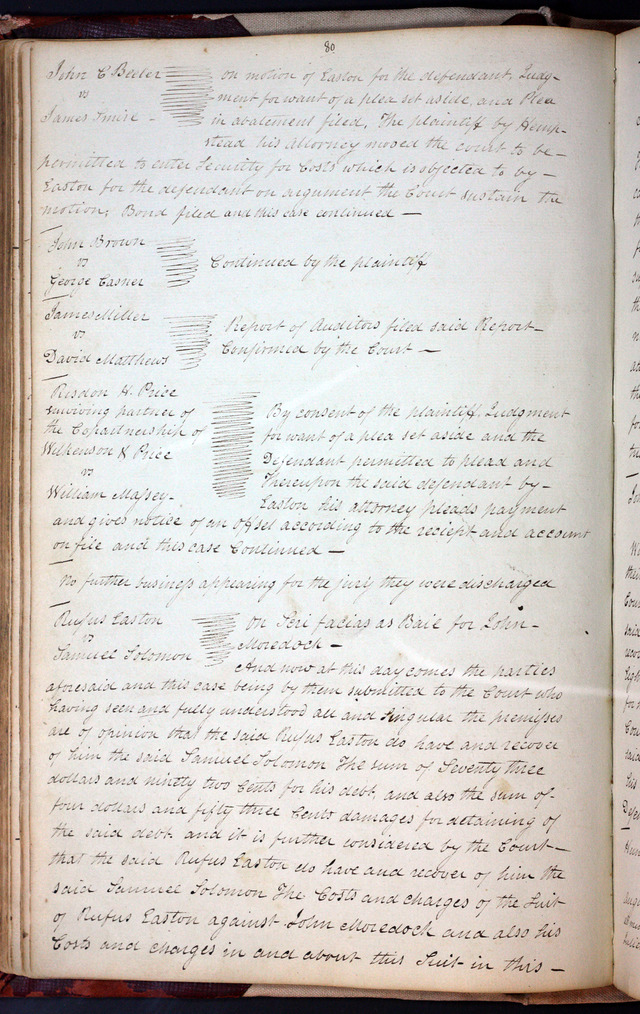 80
John C Beeler on motion of Easton for the defendant, Judg-
vs ment for want of a plea set aside, and Plea
James Smirl - in abatement filed. The plaintiff by Hemp-
stead his attorney moved the court to be-
permitted to enter Security for Costs which is objected to by-
Easton for the defendant on argument the Court sustain the
motion; Bond filed and this case continued —
John Brown
vs Continued by the plaintiff
George Casner
James Miller Report of Auditors filed said Report-
vs Confirmed by the Court —
David Matthews
Risdon H. Price
surviving partner of By consent of the plaintiff Judgment
the Copartnership of for want of a plea set aside and the
Wilkenson & Price Defendant permitted to plead and
vs Thereupon the said defendant by-
William Massey- Easton his attorney pleads payment
and gives notice of an offset according to the reciept and account
on file and this case Continued —
No further business appearing for the jury they were discharged
Rufus Easton on Scri facias as Baie for John-
vs Moredock —
Samuel Solomon And now at this day comes the parties
aforesaid and this case being by them submitted to the Court who
having seen and fully understood all and singular the premises
are of opinion that the said Rufus Easton do have and recover
of him the said Samuel Solomon The sum of Seventy three
dollars and ninety two Cents for his debt, and also the sum of-
four dollars and fifty three Cents damages for detaining of
the said debt and it is further considered by the Court —
that the said Rufus Easton do have and recover of him the
said Samuel Solomon The Costs and charges of the Suit
of Rufus Easton against John Moredock and also his
Costs and charges in and about this Suit in this —